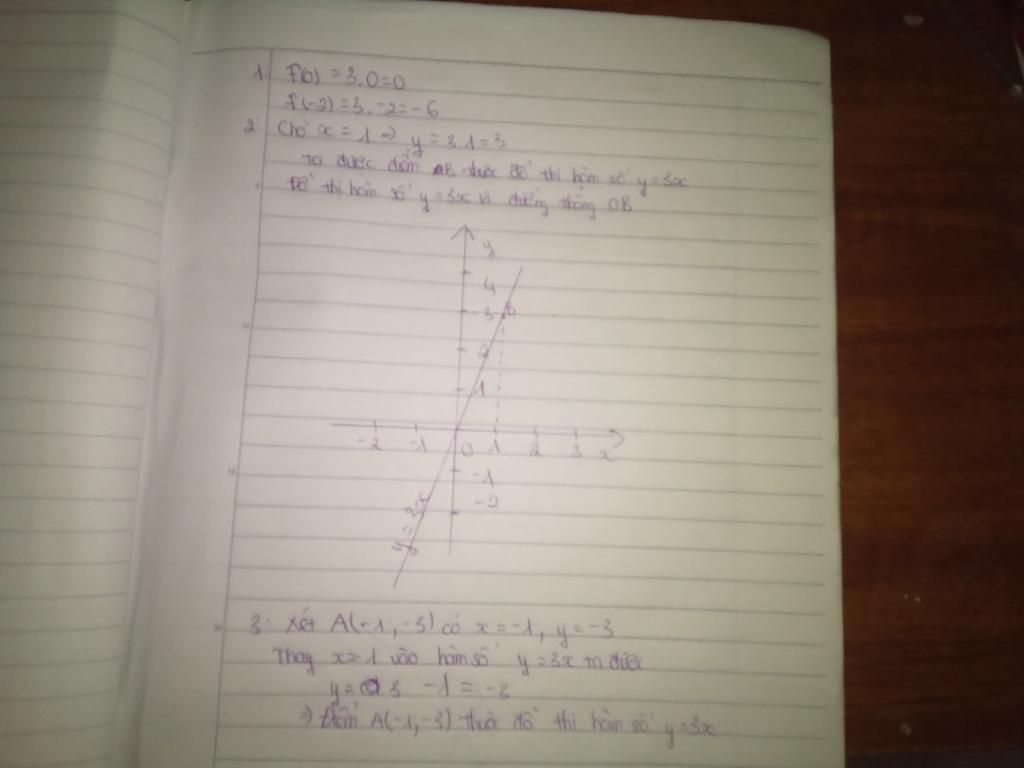 1. f(0) = 3.0=0
f(-2)=3.-2=-6
2. Cho x = 1 => y = 3.1=3
ta được điểm B thuộc đồ thị hàm số y=3x
Đồ thị hàm số y=3x là đường thẳng OB
y
4
3 B
2
1
-2 -1 O 1 2 3 x
-1
-2
3. Xét A(-1,-3) có x=-1, y=-3
Thay x=-1 vào hàm số y=3x ta được
y= 3. -1 = -3
=) Điểm A(-1,-3) thuộc đồ thị hàm số y=3x